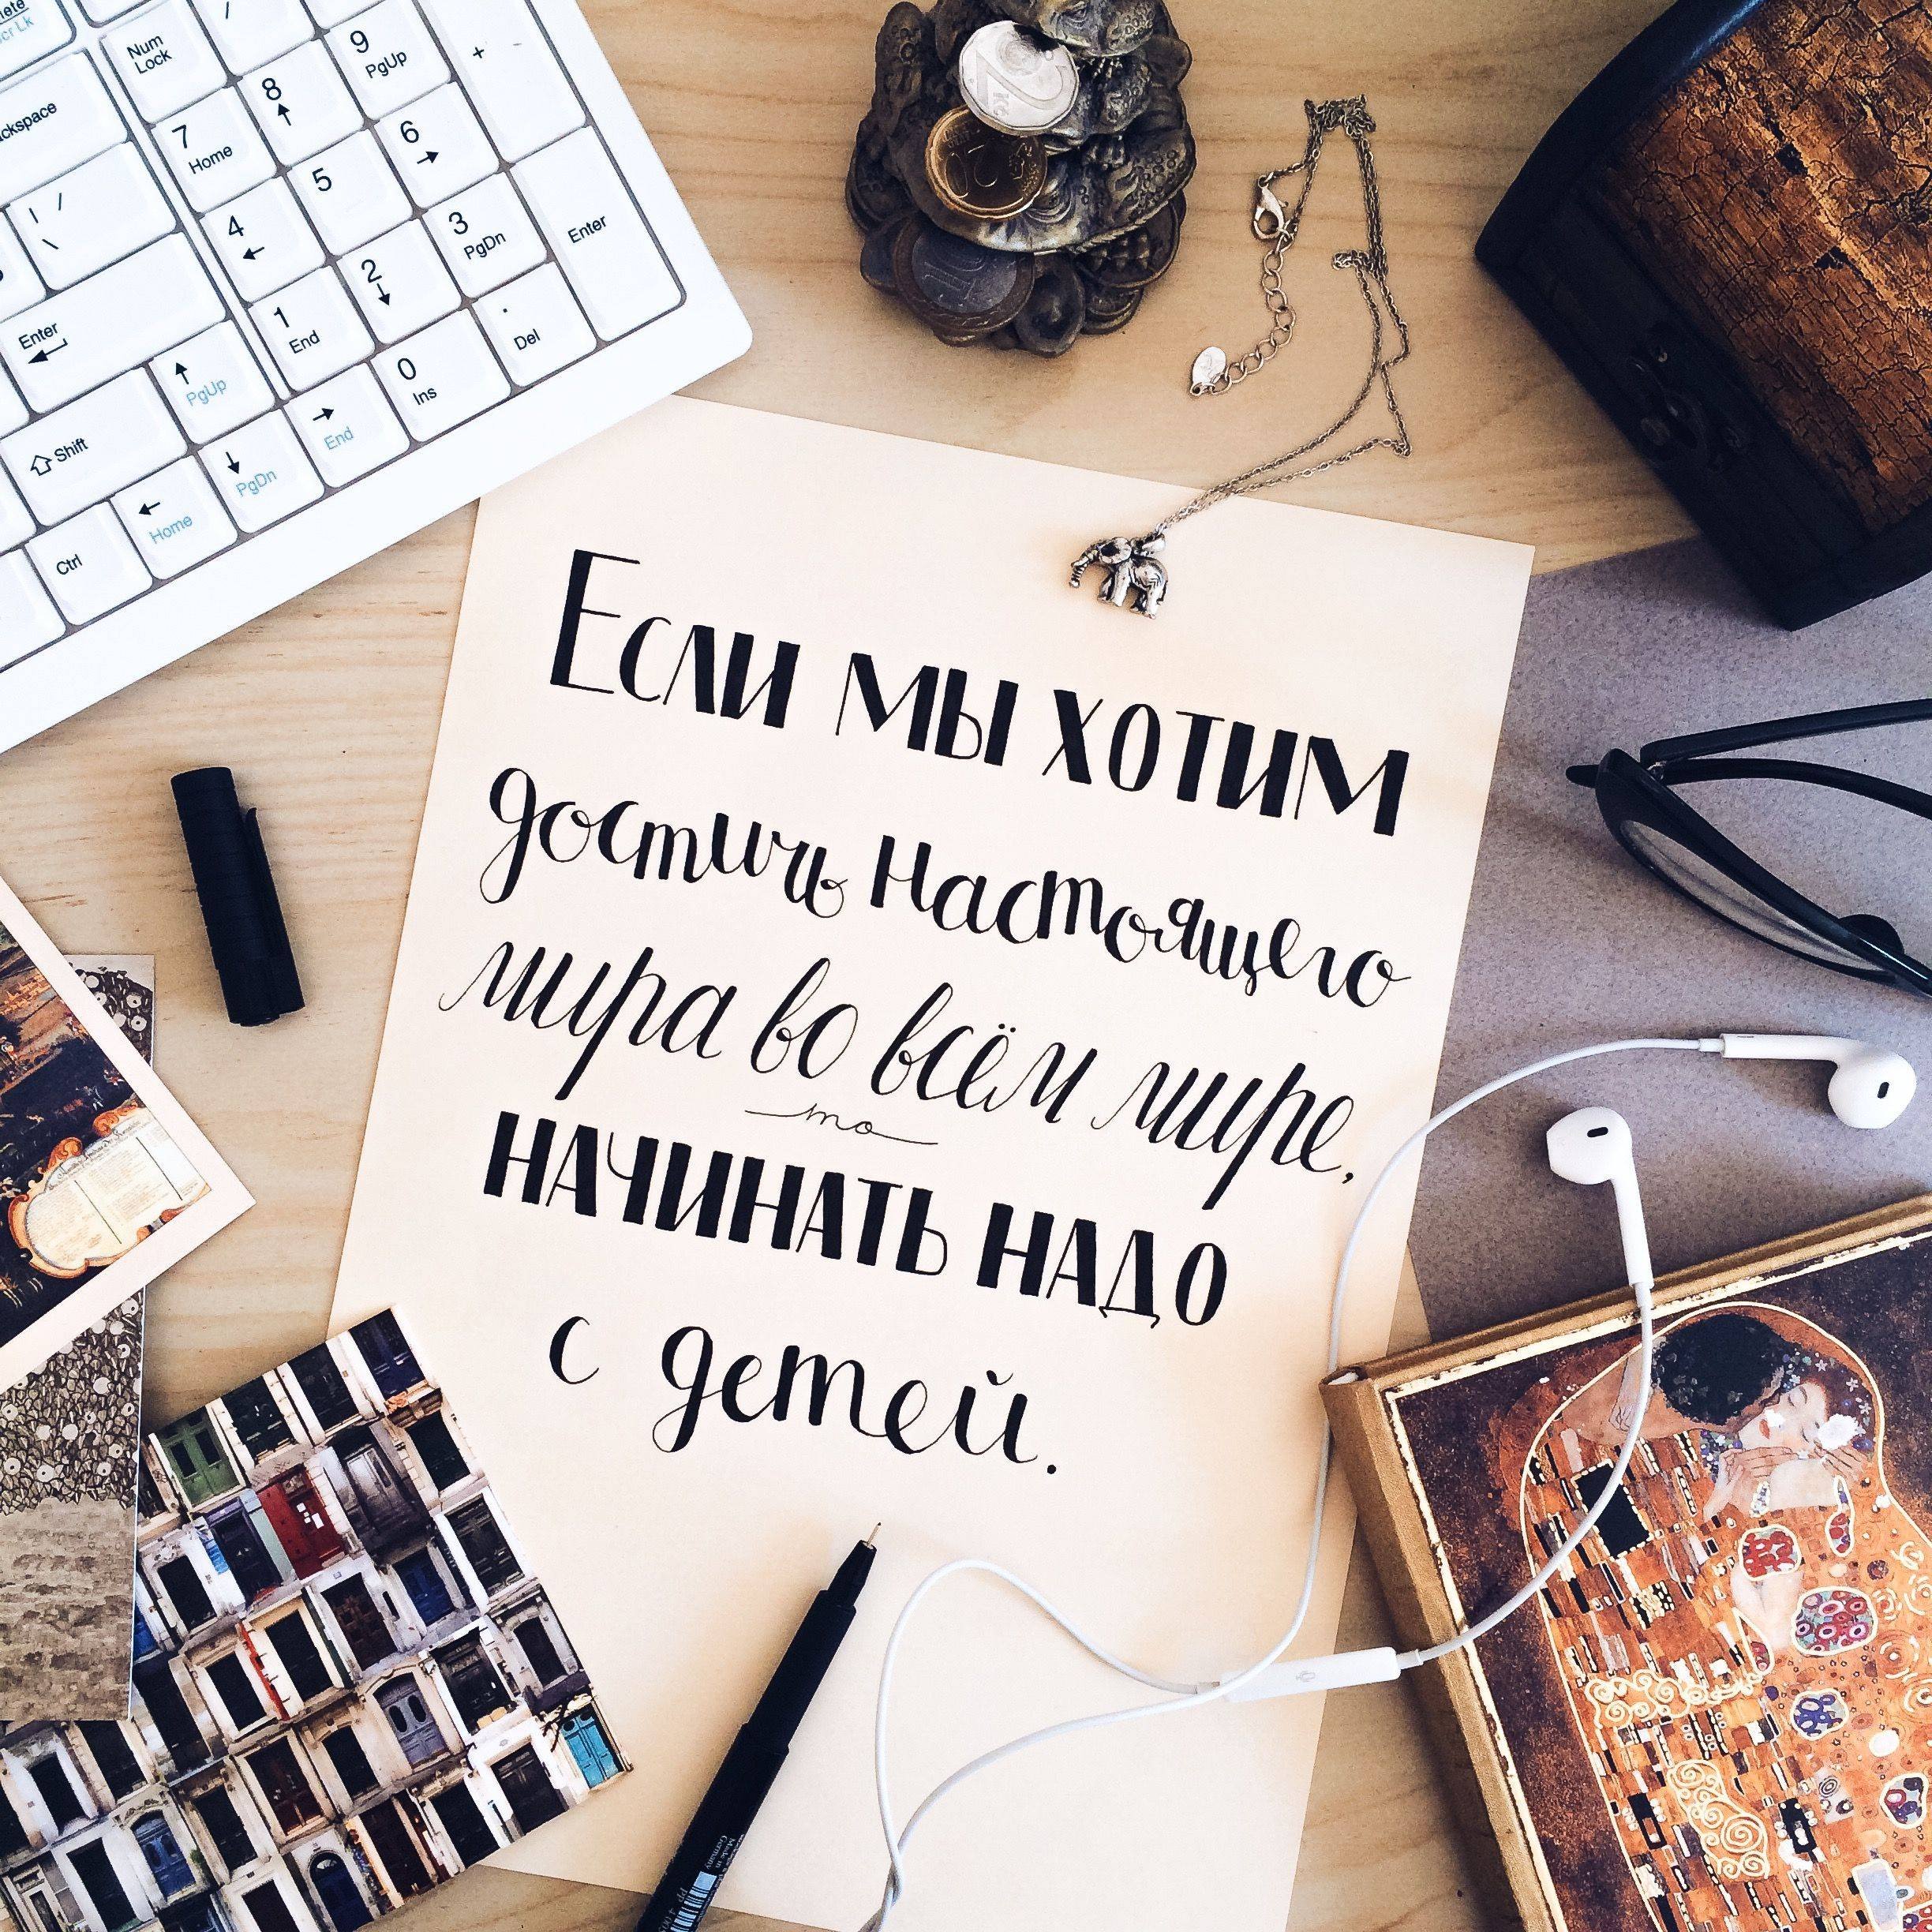 Если мы хотим
достичь настоящего
мира во всём мире,
то
начинать надо
с детей.
Num Lock
/
9 PgUp
+
-
8
7 Home
6
5
4
3 PgDn
2
1 End
Enter
. Del
0 Ins
Enter
PgUp
Shift
End
PgDn
Home
Ctrl
2
Made in Germany